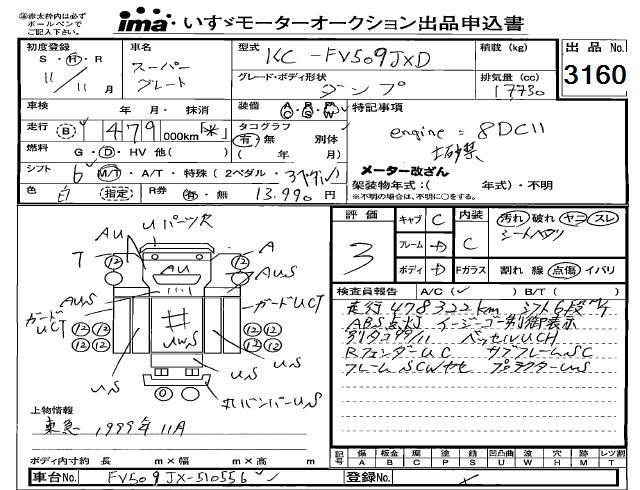 ㊟赤太枠内は必ず
ボールペンで
ご記入下さい。
ima いすゞモーターオークション出品申込書
初度登録
S・H・R
11/11月
車名
スーパー
グレート
型式
KC-FV509JXD
積載 (kg)
出品 No.
3160
グレード・ボディ形状
ダンプ
排気量 (cc)
17730
車検
年 月・ 抹消
装備
A C
P S
P W
特記事項
engine = 8DC11
土砂禁
走行
B
479
000km
*
タコグラフ
有・無 別体
( 年 月)
燃料
G・D・HV 他( )
メーター改ざん
シフト
6
M/T・A/T・特殊 (2ペダル・3ペダル)
架装物年式:( 年式)・不明
※不明の場合は、不明に○をする。
色
白
指定
R券
有・無
13.990円
評価
3
キャブ C
フレーム D
ボディ D
内装 C
Fガラス
汚れ 破れ ヤニ スレ
シートヘタリ
割れ 線 点傷 イバリ
Uパーツ欠
AU
A
7
12
12
AU
AUS
AUS
ガードUCT
ガードUCT
12 12
12 12
12 12
12 12
#
UWS
US
US
US
丸バンパーUS
検査員報告
A/C( ✓ )
B/T( )
走行478322km シフト6段M/T
ABS点灯 イージーゴー制御表示
別タコ99/11 ベッセルUCH
RフェンダーUC サブフレームSC
フレームSCWヤセ プロテクターUS
上物情報
東急 1999年11月
記号
傷 A
板金 B
腐 C
塗 P
錆 S
凹凸曲 U
波 W
穴 H
ミ M
レツ割 T
ボディ内寸約 長 m×幅 m×高 m
車台No.
FV509JX-510556
登録No.